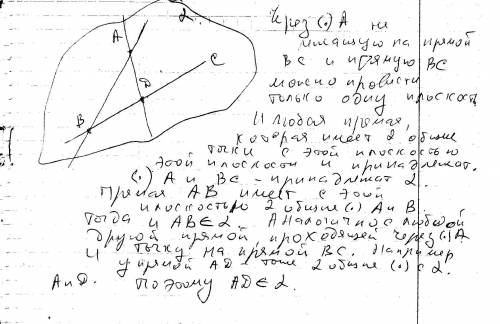 Через (.) A не
лежащую на прямой
BC и прямую BC
можно провести
только одну плоскость
И любая прямая,
которая имеет 2 общие
точки с этой плоскостью
этой плоскости и принадлежат.
(.) A и BC - принадлежат α.
Прямая AB имеет с этой
плоскостью 2 общие (.) A и B.
Тогда и AB∈α. Аналогично с любой
другой прямой проходящей через (.) A
и точку на прямой BC. Например
у прямой AD тоже 2 общие (.) с α.
A и D. Поэтому AD∈α.
α
A
C
D
B